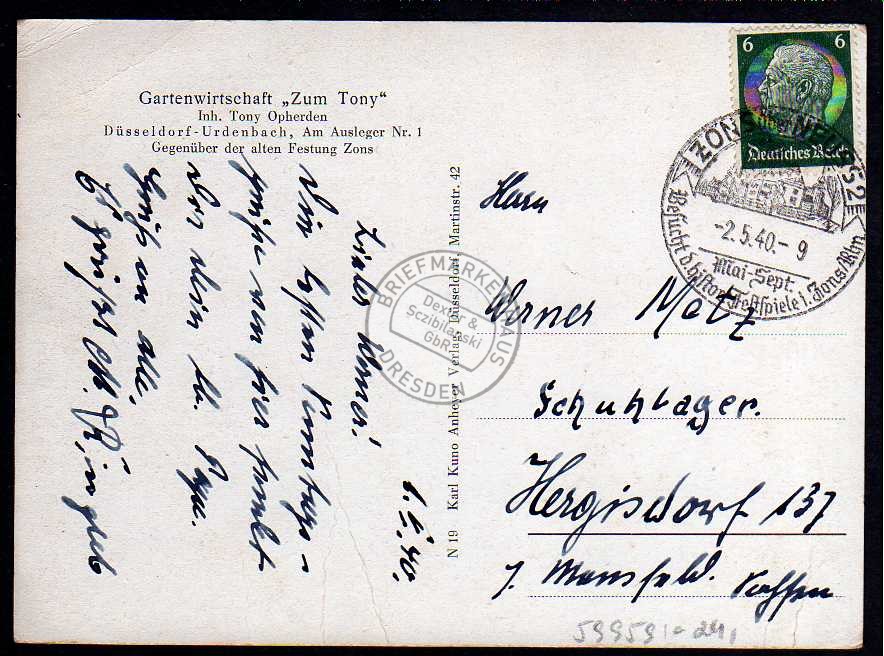 Gartenwirtschaft „Zum Tony“
Inh. Tony Opherden
Düsseldorf-Urdenbach, Am Ausleger Nr. 1
Gegenüber der alten Festung Zons
1.5.40.
Lieber Werner!
Die besten
Grüße von hier sendet
Dir Dein
Gruß an alle.
N 19 Karl Kuno Anheyer Verlag Düsseldorf, Martinstr. 42
6 6
Deutsches Reich
ZONS
-2.5.40.- 9
Mai-Sept.
Besucht d. histor. Festspiele i. Zons/Rhn.
Herrn
Werner Metz
Schuhlager.
Hergisdorf 137
Mansfeld. Sachsen
BRIEFMARKENHAUS
Dexler &
Sczibilanski
GbR
DRESDEN